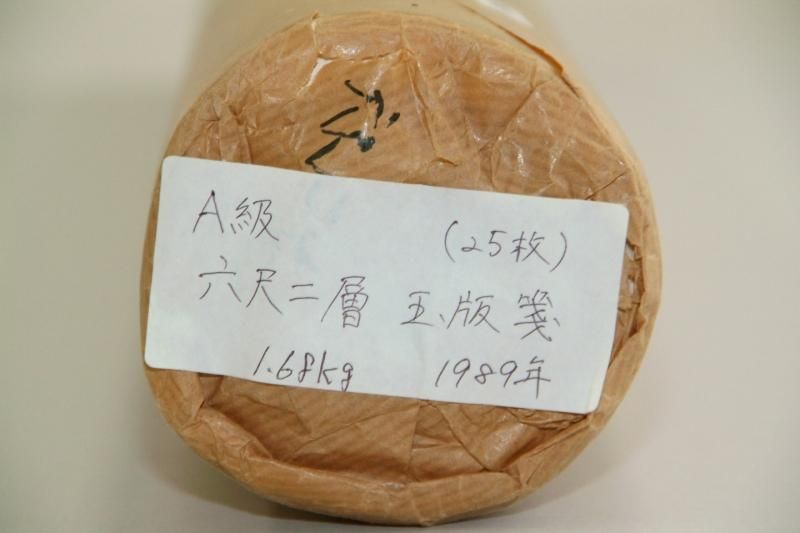 A級
(25枚)
六尺二層 玉版箋
1.68kg 1989年